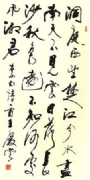 洞庭西望楚江分水盡
南天不見雲日落長
沙秋色遠不知何處
吊湘君 李白詩